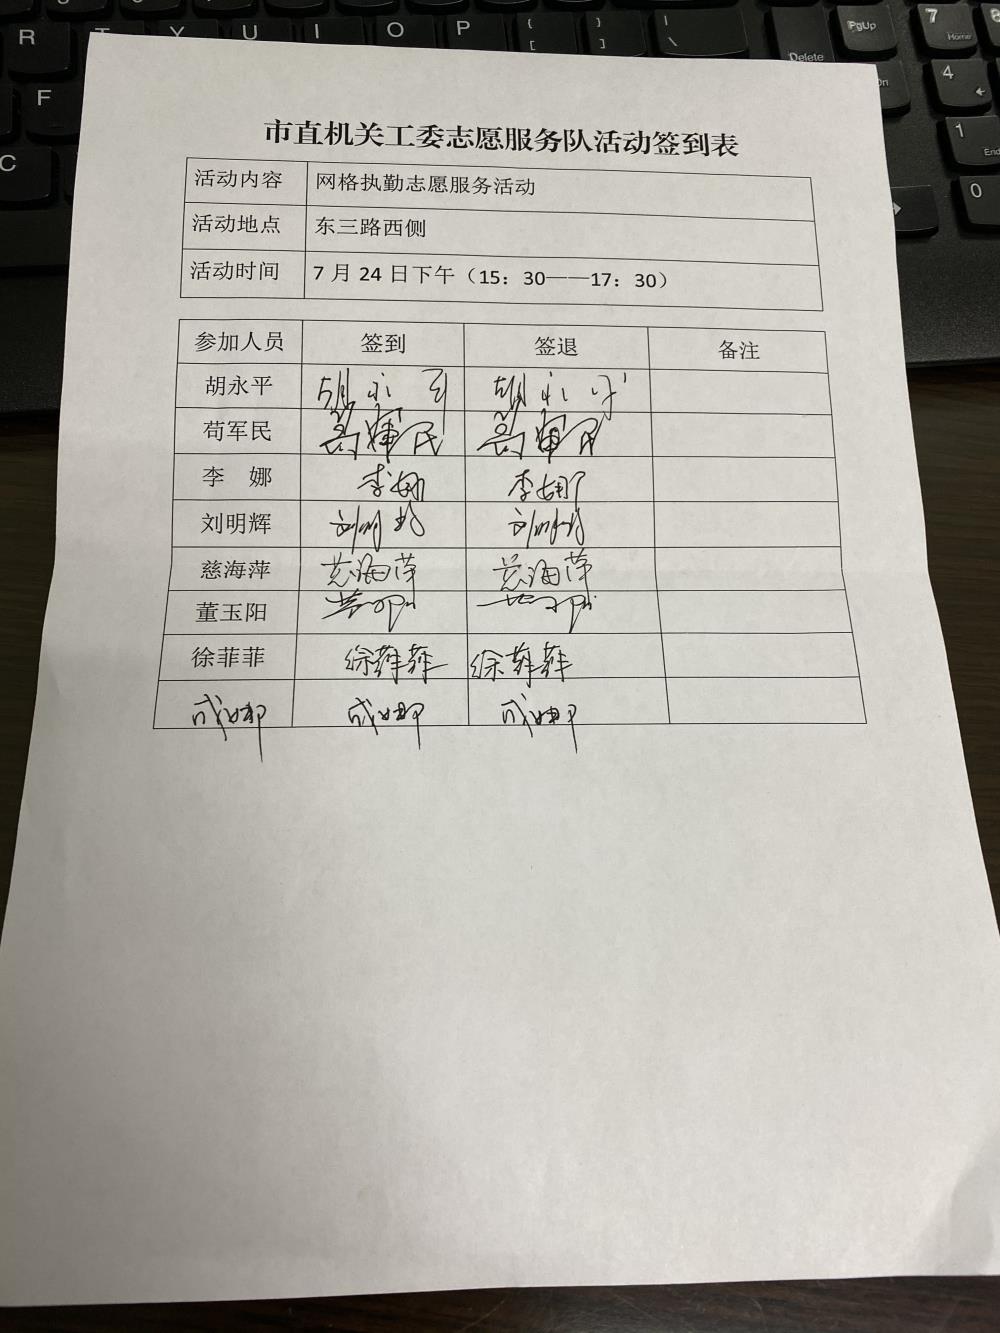 R T Y U I O P { [ } ] | \ Delete PgUp 7 Home
F 4
C 1 End
0
市直机关工委志愿服务队活动签到表
活动内容 网格执勤志愿服务活动
活动地点 东三路西侧
活动时间 7月24日下午（15：30——17：30）
参加人员 签到 签退 备注
胡永平 胡永平 胡永平
苟军民
李 娜 李娜 李娜
刘明辉 刘明辉 刘明辉
慈海萍 慈海萍 慈海萍
董玉阳
徐菲菲 徐菲菲 徐菲菲
成娜 成娜 成娜